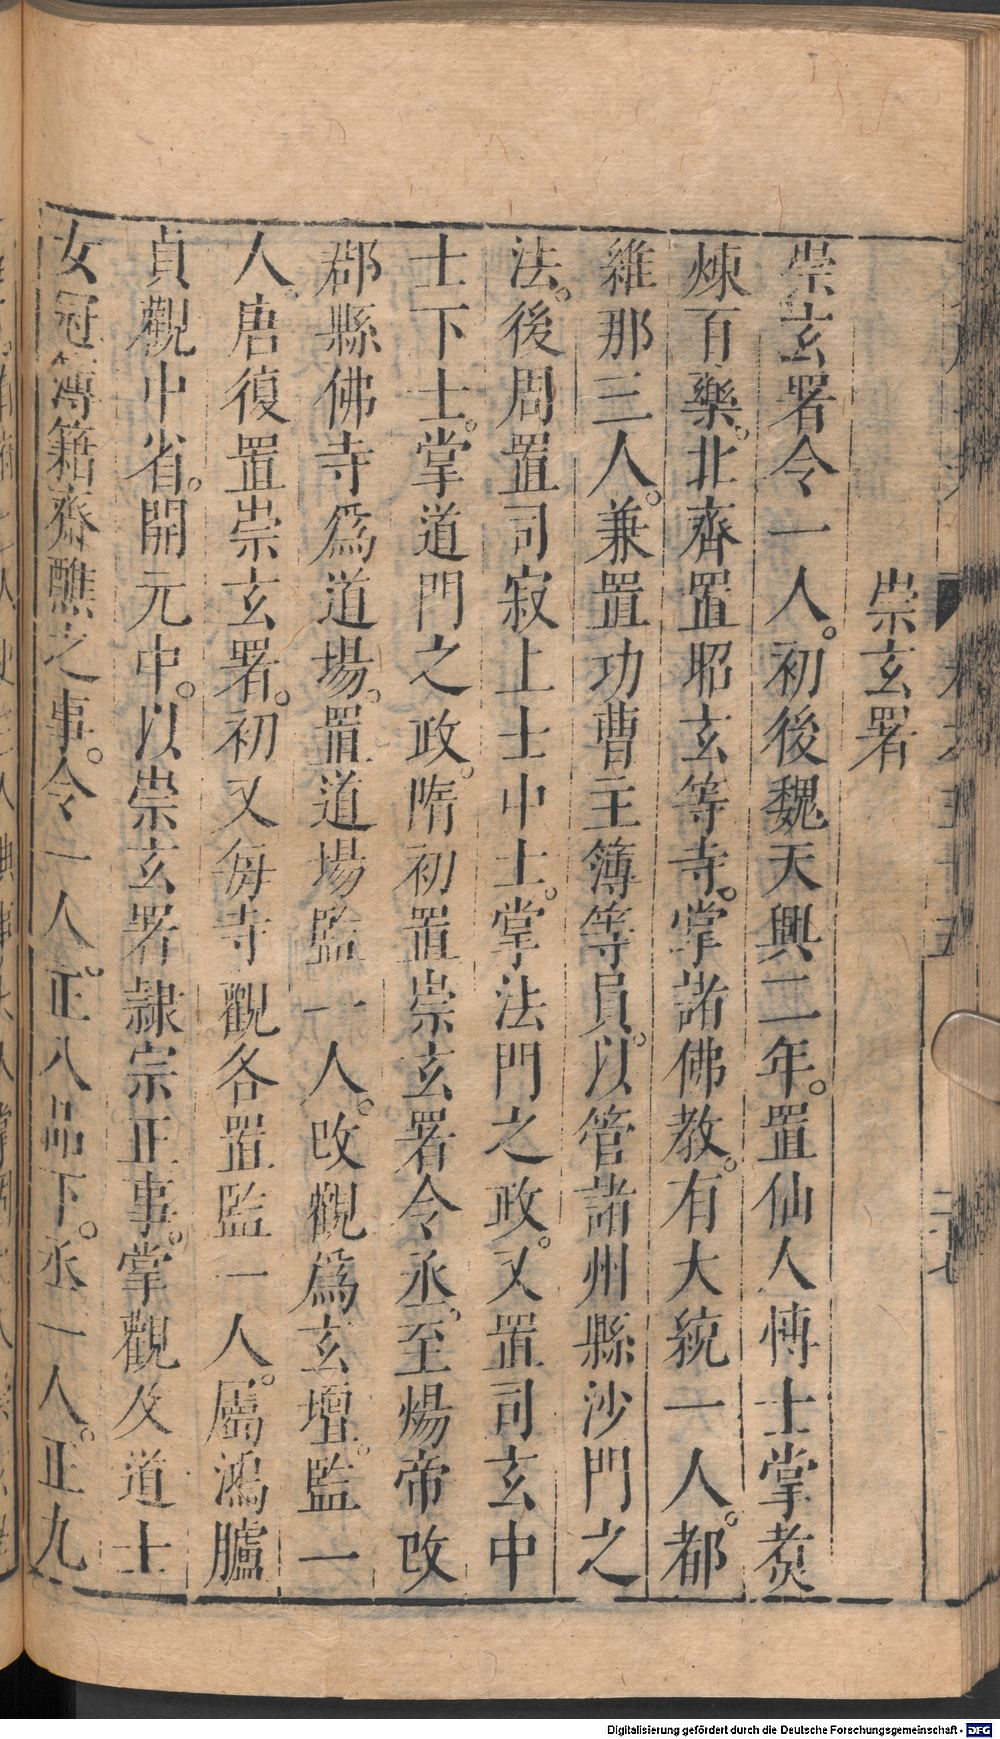 崇玄署
崇玄署令一人。初後魏天興二年。置仙人博士掌煑
煉百藥。北齊置昭玄等寺。掌諸佛教。有大統一人。都
維那三人。兼置功曹主簿等員。以管諸州縣沙門之
法。後周置司寂上士中士。掌法門之政。又置司玄中
士下士。掌道門之政。隋初置崇玄署令丞。至煬帝改
郡縣佛寺爲道場。置道場監一人。改觀爲玄壇。監一
人。唐復置崇玄署。初又每寺觀各置監一人。屬鴻臚
貞觀中省。開元中。以崇玄署隷宗正事。掌觀及道士
女冠簿籍齋醮之事。令一人。正八品下。丞一人。正九
Digitalisierung gefördert durch die Deutsche Forschungsgemeinschaft - DFG